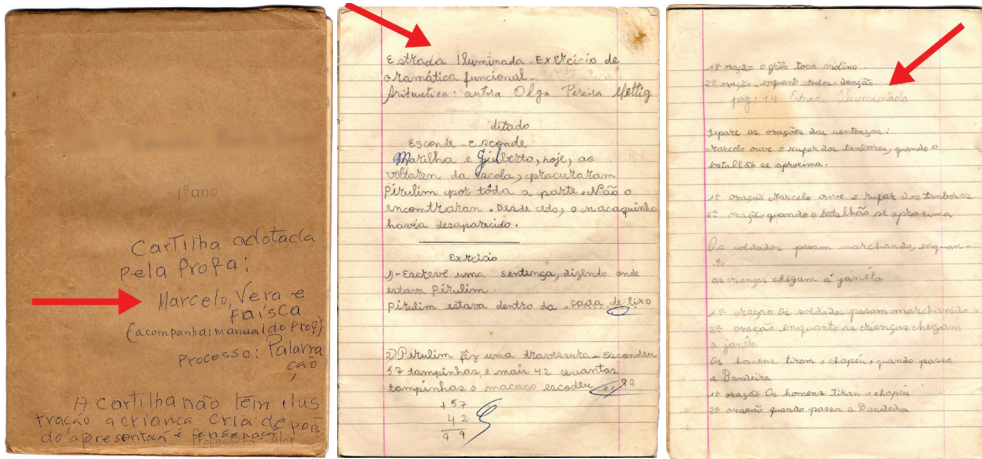 1º ano
Cartilha adotada
pela Profa:
Marcelo, Vera e
Faísca
(acompanha: manual do Prof)
Processo: Palavra
ção
A Cartilha não tem ilus
tração a criança cria depois
de apresentar
Estrada Iluminada - Exercício de
Gramática funcional -
Aritmetica: autora Olga Pereira Mettig
ditado
Esconde-esconde
Marilha e Gilberto, hoje, ao
voltaren da escola, procuraram
Pirulim por tôda a parte. Não o
encontraran. Desde cedo, o macaquinho
havia desaparecido.
Exrcicio
1)-Escreve uma sentença, dizendo onde
estava Pirulim.
Pirulim estava dentro da caixa de lixo
2) Pirulim fêz uma travessura - escondeu
57 tampinhas e mais 42 quantas
tampinhas o macaco escodeu 99
+57
42
99
1ª oração o grilo toca violino
2ª oração enquanto todos dançāo
pag: 14 Estrad Iluminada
Separe as orações das sentenças:
Marcelo ouve o rufar dos tambores, quando o
batalhão se aproxima.
1ª oração Marcelo ouve o rufar dos tambores
2ª oração quando o batalhão se aproxima
Os soldados passam marchando, enquan-
to
as crianças chegam á janéla
1ª oração Os soldados passam marchando
2ª oração enquanto as crianças chegam
a janéla
Os homens tiram o chapéu, quando passa
a Bandeira
1ª oração Os homens tiran o chapéu
2ª oração quando passa a Bandeira